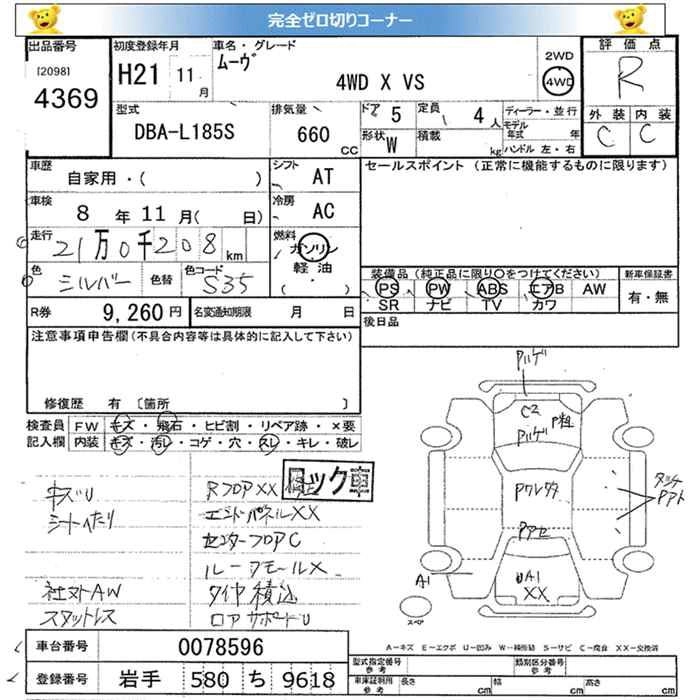 完全ゼロ切りコーナー
出品番号 初度登録年月 車名・グレード 評価点
[2098] 4369 H21 11月 ムーヴ 4WD X VS 2WD 4WD R
型式 DBA-L185S 排気量 660 CC ドア 5 形状 W 定員 4 人 積載 kg
ディーラー・並行 モデル年式 年 ハンドル 左・右
外装 内装
C C
車歴 自家用・( ) シフト AT
車検 8年11月( 日) 冷房 AC
走行 21万0千208km 燃料 ガソリン 軽油 ( ・ )
色 シルバー 色替 色コード S35
R券 9,260円 名変通知期限 月 日
セールスポイント (正常に機能するものに限ります)
装備品(純正品に限り○をつけてください) 新車保証書
PS PW ABS エアB AW 有・無
SR ナビ TV カワ
後日品
注意事項申告欄(不具合内容等は具体的に記入して下さい)
修復歴 有 [箇所 ]
検査員 FW キズ・飛石・ヒビ割・リペア跡・×要
記入欄 内装 キズ・汚レ・コゲ・穴・スレ・キレ・破レ
キズU
シートヘたり
社外AW
スタットレス
RフロアXX
ロック車
エンドパネルXX
センターフロアC
ルーフモールX
タイヤ積込
ロアサポートU
C2
P粗
A1
UA1
XX
スペア
A−キズ E−エクボ U−凹み W−補修跡 S−サビ C−腐食 XX−交換済
車台番号 0078596
登録番号 岩手 580 ち 9618
型式指定番号 参考 類別区分番号 参考
車庫証明用 参考 長さ cm 幅 cm 高さ cm